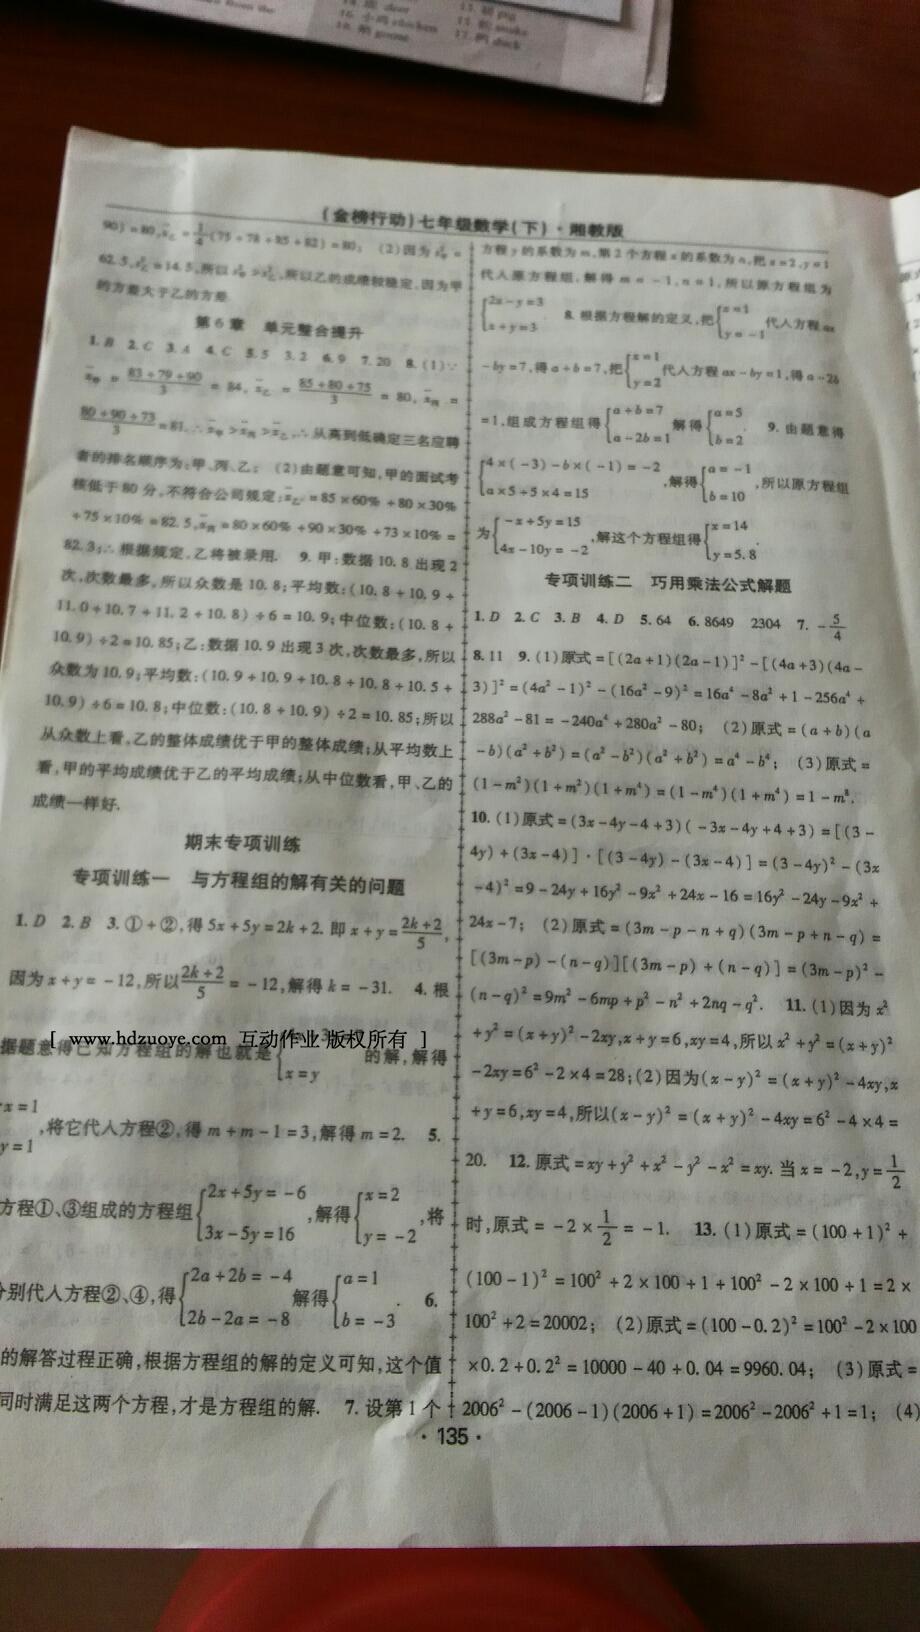 deer
小鸡 chicken
鹅 goose
猪 pig
蛇 snake
17. 鸭 duck
(金榜行动)七年级数学(下)·湘教版
90)=80,x̄乙=1/4(75+78+85+82)=80; (2)因为s²甲=
62.5,s²乙=14.5,所以s²甲>s²乙,所以乙的成绩较稳定,因为甲
的方差大于乙的方差
第6章 单元整合提升
1.B 2.C 3.A 4.C 5.5 3.2 6.9 7.20 8.(1)∵
x̄甲=(83+79+90)/3=84, x̄乙=(85+80+75)/3=80, x̄丙=
(80+90+73)/3=81.∴x̄甲>x̄丙>x̄乙,∴从高到低确定三名应聘
者的排名顺序为:甲、丙、乙; (2)由题意可知,甲的面试考
核低于80分,不符合公司规定;x̄乙=85×60%+80×30%
+75×10%=82.5,x̄丙=80×60%+90×30%+73×10%=
82.3;∴根据规定,乙将被录用. 9.甲:数据10.8出现2
次,次数最多,所以众数是10.8;平均数:(10.8+10.9+
11.0+10.7+11.2+10.8)÷6=10.9;中位数:(10.8+
10.9)÷2=10.85;乙:数据10.9出现3次,次数最多,所以
众数为10.9;平均数:(10.9+10.9+10.8+10.8+10.5+
10.9)÷6=10.8;中位数:(10.8+10.9)÷2=10.85;所以
从众数上看,乙的整体成绩优于甲的整体成绩;从平均数上
看,甲的平均成绩优于乙的平均成绩;从中位数看,甲、乙的
成绩一样好.
期末专项训练
专项训练一 与方程组的解有关的问题
1.D 2.B 3.①+②,得5x+5y=2k+2.即x+y=(2k+2)/5,
因为x+y=-12,所以(2k+2)/5=-12,解得k=-31. 4.根
[ www.hdzuoye.com 互动作业 版权所有 ]
据题意得已知方程组的解也就是{x=y的解,解得
x=1
y=1,将它代入方程②,得m+m-1=3,解得m=2. 5.
方程①、③组成的方程组{2x+5y=-6 3x-5y=16,解得{x=2 y=-2,将
分别代入方程②、④,得{2a+2b=-4 2b-2a=-8解得{a=1 b=-3. 6.
的解答过程正确,根据方程组的解的定义可知,这个值
同时满足这两个方程,才是方程组的解. 7.设第1个
方程y的系数为m,第2个方程x的系数为n,把x=2,y=1
代入原方程组,解得m=-1,n=1,所以原方程组为
{2x-y=3 x+y=3. 8.根据方程解的定义,把{x=1 y=-1代入方程ax
-by=7,得a+b=7,把{x=1 y=2代入方程ax-by=1,得a-2b
=1,组成方程组得{a+b=7 a-2b=1解得{a=5 b=2. 9.由题意得
{4×(-3)-b×(-1)=-2 a×5+5×4=15,解得{a=-1 b=10,所以原方程组
为{-x+5y=15 4x-10y=-2,解这个方程组得{x=14 y=5.8.
专项训练二 巧用乘法公式解题
1.D 2.C 3.B 4.D 5.64 6.8649 2304 7.-5/4
8.11 9.(1)原式=[(2a+1)(2a-1)]²-[(4a+3)(4a-
3)]²=(4a²-1)²-(16a²-9)²=16a⁴-8a²+1-256a⁴+
288a²-81=-240a⁴+280a²-80; (2)原式=(a+b)(a
-b)(a²+b²)=(a²-b²)(a²+b²)=a⁴-b⁴; (3)原式=
(1-m²)(1+m²)(1+m⁴)=(1-m⁴)(1+m⁴)=1-m⁸.
10.(1)原式=(3x-4y-4+3)(-3x-4y+4+3)=[(3-
4y)+(3x-4)]·[(3-4y)-(3x-4)]=(3-4y)²-(3x
-4)²=9-24y+16y²-9x²+24x-16=16y²-24y-9x²+
24x-7; (2)原式=(3m-p-n+q)(3m-p+n-q)=
[(3m-p)-(n-q)][(3m-p)+(n-q)]=(3m-p)²-
(n-q)²=9m²-6mp+p²-n²+2nq-q². 11.(1)因为x²
+y²=(x+y)²-2xy,x+y=6,xy=4,所以x²+y²=(x+y)²
-2xy=6²-2×4=28;(2)因为(x-y)²=(x+y)²-4xy,x
+y=6,xy=4,所以(x-y)²=(x+y)²-4xy=6²-4×4=
20. 12.原式=xy+y²+x²-y²-x²=xy.当x=-2,y=1/2
时,原式=-2×1/2=-1. 13.(1)原式=(100+1)²+
(100-1)²=100²+2×100+1+100²-2×100+1=2×
100²+2=20002; (2)原式=(100-0.2)²=100²-2×100
×0.2+0.2²=10000-40+0.04=9960.04; (3)原式=
2006²-(2006-1)(2006+1)=2006²-2006²+1=1; (4)
·135·